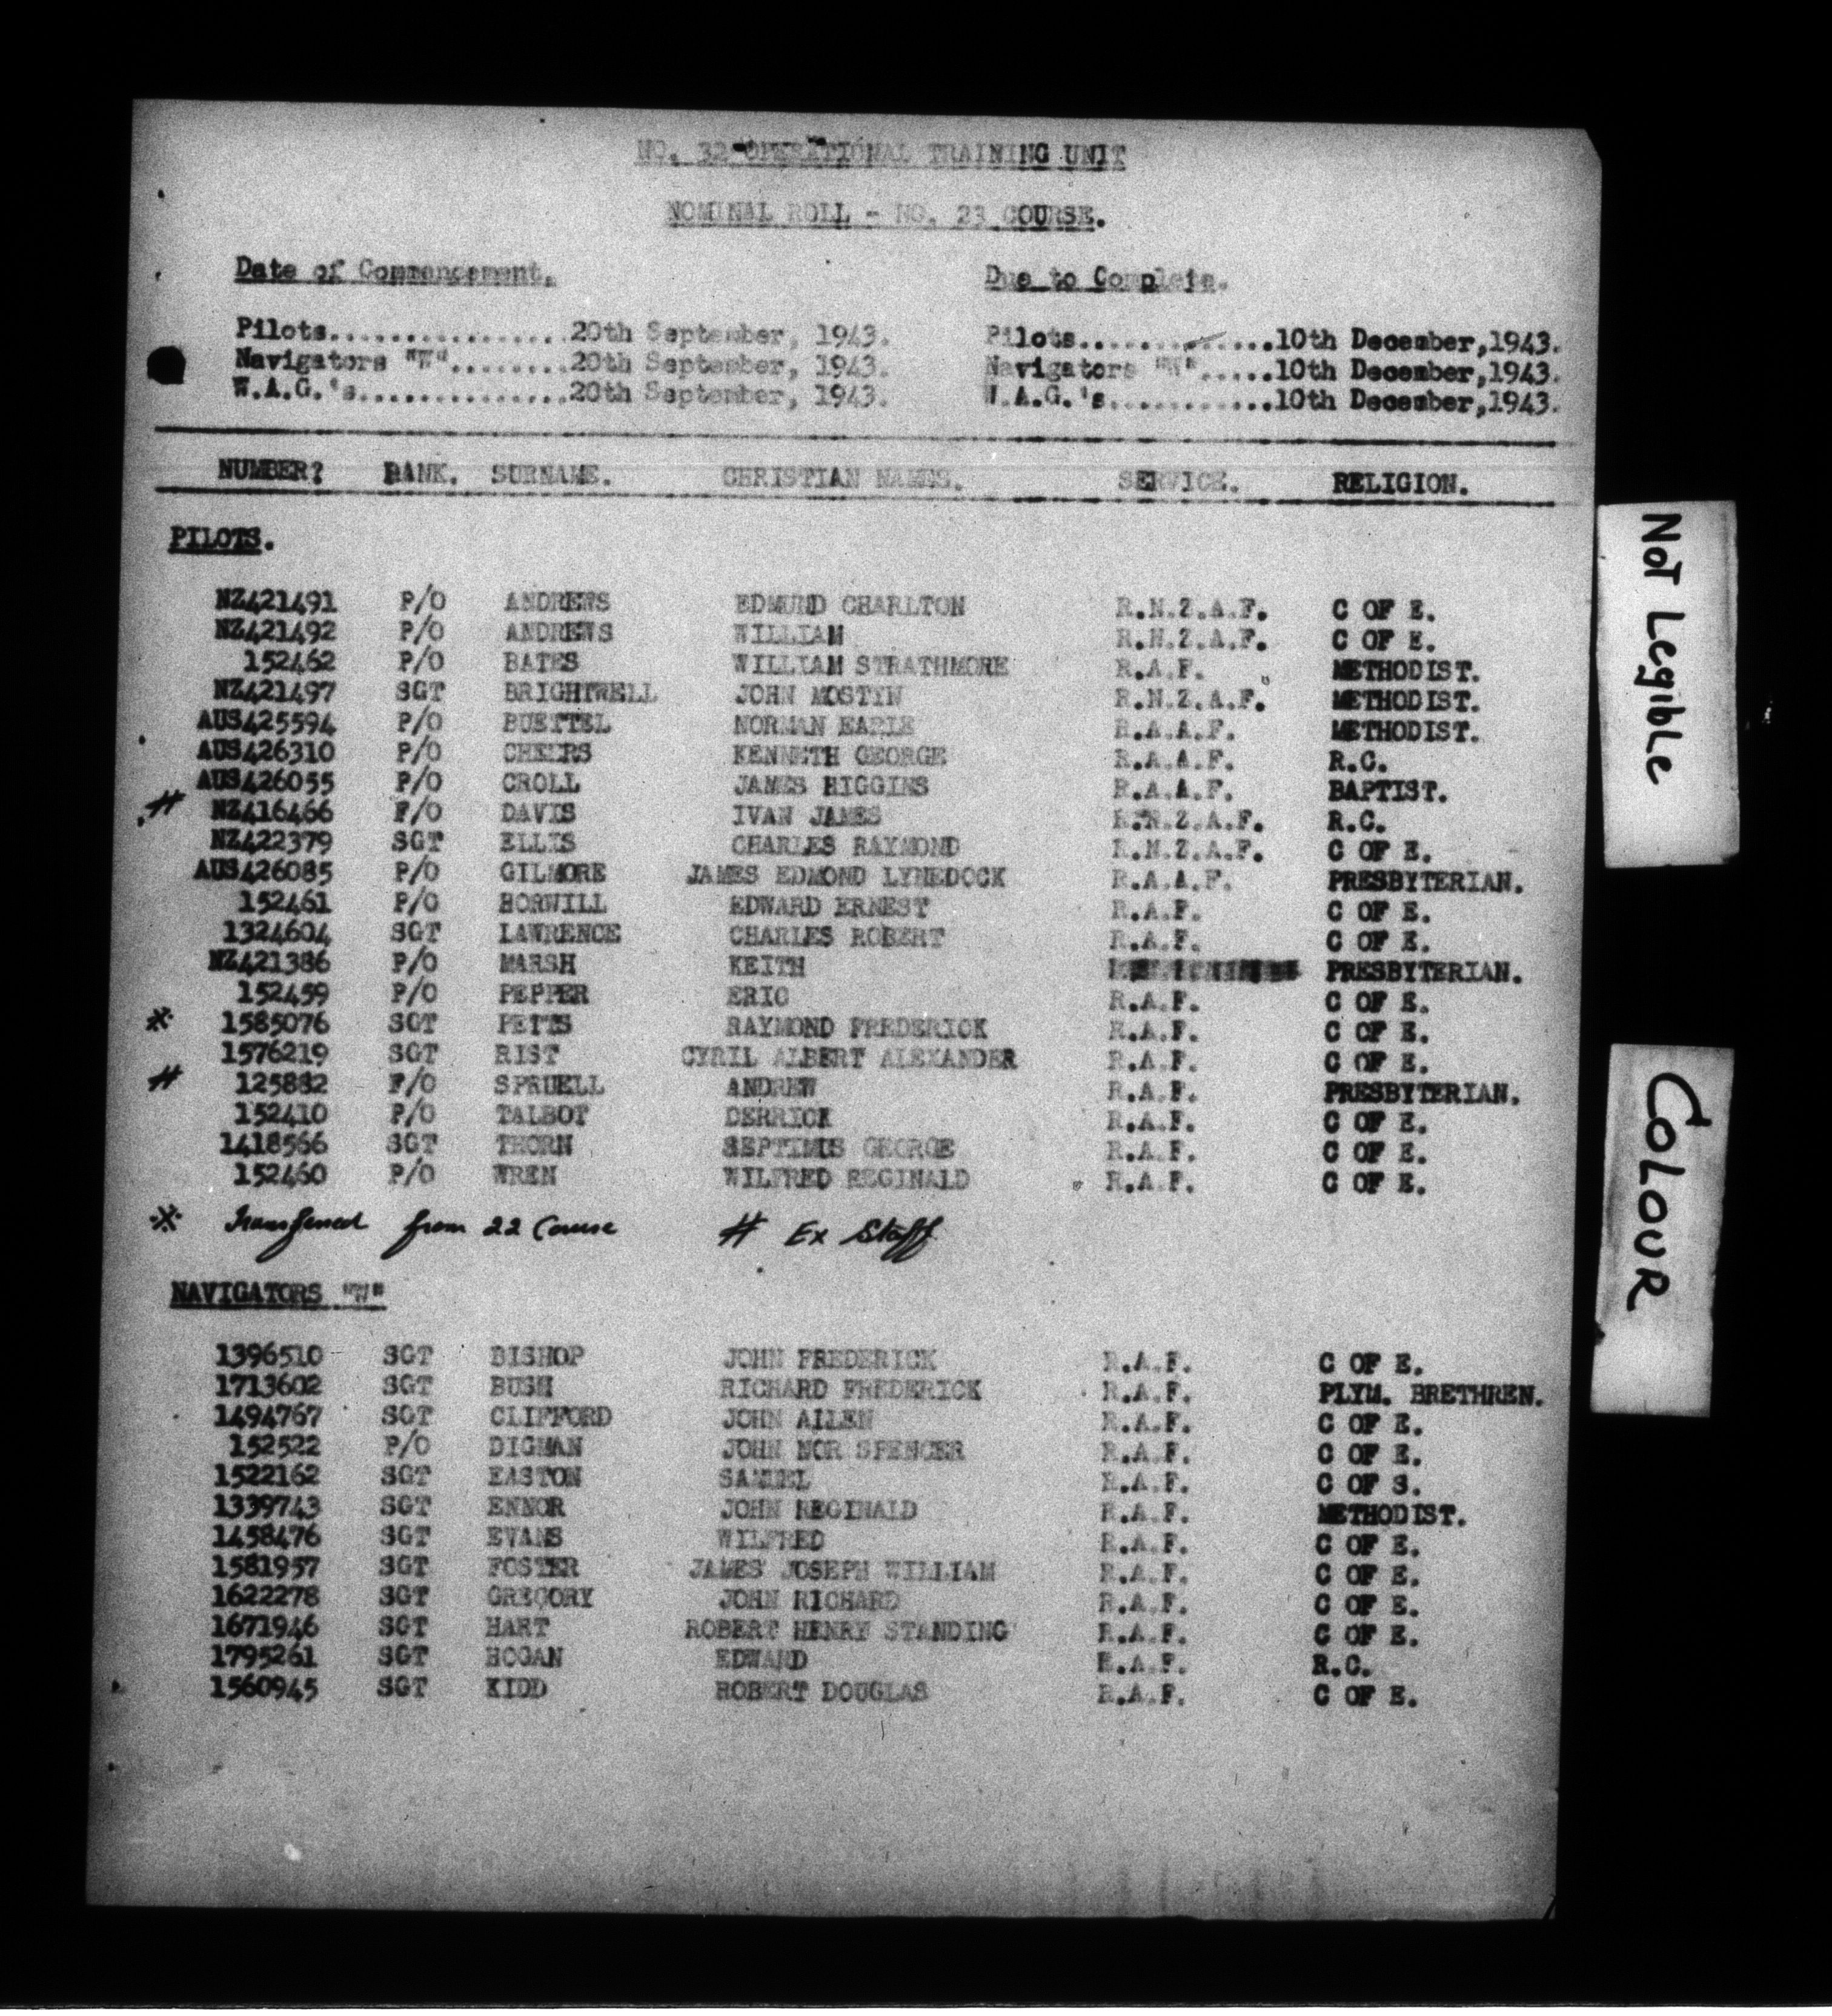 NO. 32 OPERATIONAL TRAINING UNIT
NOMINAL ROLL - NO. 23 COURSE.
Date of Commencement. Due to Complete.
Pilots................20th September, 1943. Pilots.............10th December,1943.
Navigators "W"........20th September, 1943. Navigators "W".....10th December,1943.
W.A.G.'s..............20th September, 1943. W.A.G.'s...........10th December,1943.
NUMBER? RANK. SURNAME. CHRISTIAN NAMES. SERVICE. RELIGION.
PILOTS.
NZ421491 P/O ANDREWS EDMUND CHARLTON R.N.Z.A.F. C OF E.
NZ421492 P/O ANDREWS WILLIAM R.N.Z.A.F. C OF E.
152462 P/O BATES WILLIAM STRATHMORE R.A.F. METHODIST.
NZ421497 SGT BRIGHTWELL JOHN MOSTYN R.N.Z.A.F. METHODIST.
AUS425594 P/O BUETTEL NORMAN EARLE R.A.A.F. METHODIST.
AUS426310 P/O CHEERS KENNETH GEORGE R.A.A.F. R.C.
AUS426055 P/O CROLL JAMES HIGGINS R.A.A.F. BAPTIST.
# NZ416466 F/O DAVIS IVAN JAMES R.N.Z.A.F. R.C.
NZ422379 SGT ELLIS CHARLES RAYMOND R.N.Z.A.F. C OF E.
AUS426085 P/O GILMORE JAMES EDMOND LYNEDOCK R.A.A.F. PRESBYTERIAN.
152461 P/O HORWILL EDWARD ERNEST R.A.F. C OF E.
1324604 SGT LAWRENCE CHARLES ROBERT R.A.F. C OF E.
NZ421386 P/O MARSH KEITH PRESBYTERIAN.
152459 P/O PEPPER ERIC R.A.F. C OF E.
※ 1585076 SGT PETTS RAYMOND FREDERICK R.A.F. C OF E.
1576219 SGT RIST CYRIL ALBERT ALEXANDER R.A.F. C OF E.
# 125882 F/O SPRUELL ANDREW R.A.F. PRESBYTERIAN.
152410 P/O TALBOT DERRICK R.A.F. C OF E.
1418566 SGT THORN SEPTIMUS GEORGE R.A.F. C OF E.
152460 P/O WREN WILFRED REGINALD R.A.F. C OF E.
※ Transferred from 22 Course # Ex Staff
NAVIGATORS "W"
1396510 SGT BISHOP JOHN FREDERICK R.A.F. C OF E.
1713602 SGT BUSH RICHARD FREDERICK R.A.F. PLYM. BRETHREN.
1494767 SGT CLIFFORD JOHN ALLEN R.A.F. C OF E.
152522 P/O DIGMAN JOHN NOR SPENCER R.A.F. C OF E.
1522162 SGT EASTON SAMUEL R.A.F. C OF S.
1339743 SGT ENNOR JOHN REGINALD R.A.F. METHODIST.
1458476 SGT EVANS WILFRED R.A.F. C OF E.
1581957 SGT FOSTER JAMES JOSEPH WILLIAM R.A.F. C OF E.
1622278 SGT GREGORY JOHN RICHARD R.A.F. C OF E.
1671946 SGT HART ROBERT HENRY STANDING R.A.F. C OF E.
1795261 SGT HOGAN EDWARD R.A.F. R.C.
1560945 SGT KIDD ROBERT DOUGLAS R.A.F. C OF E.
Not Legible
COLOUR